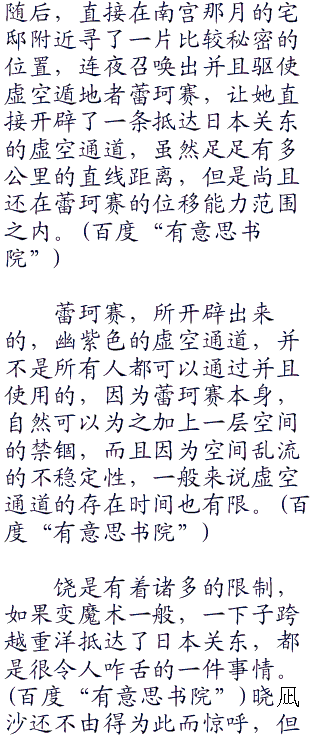 随后，直接在南宫那月的宅
邸附近寻了一片比较秘密的
位置，连夜召唤出并且驱使
虚空遁地者蕾珂赛，让她直
接开辟了一条抵达日本关东
的虚空通道，虽然足足有多
公里的直线距离，但是尚且
还在蕾珂赛的位移能力范围
之内。(百度“有意思书
院”)
蕾珂赛，所开辟出来
的，幽紫色的虚空通道，并
不是所有人都可以通过并且
使用的，因为蕾珂赛本身，
自然可以为之加上一层空间
的禁锢，而且因为空间乱流
的不稳定性，一般来说虚空
通道的存在时间也有限。(百
度“有意思书院”)
饶是有着诸多的限制，
如果变魔术一般，一下子跨
越重洋抵达了日本关东，都
是很令人咋舌的一件事情。
(百度“有意思书院”)晓凪
沙还不由得为此而惊呼，但